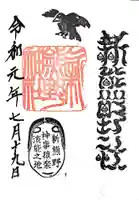 新熊野神社
令和元年七月十九日
新熊野
神事猿楽
演能之地